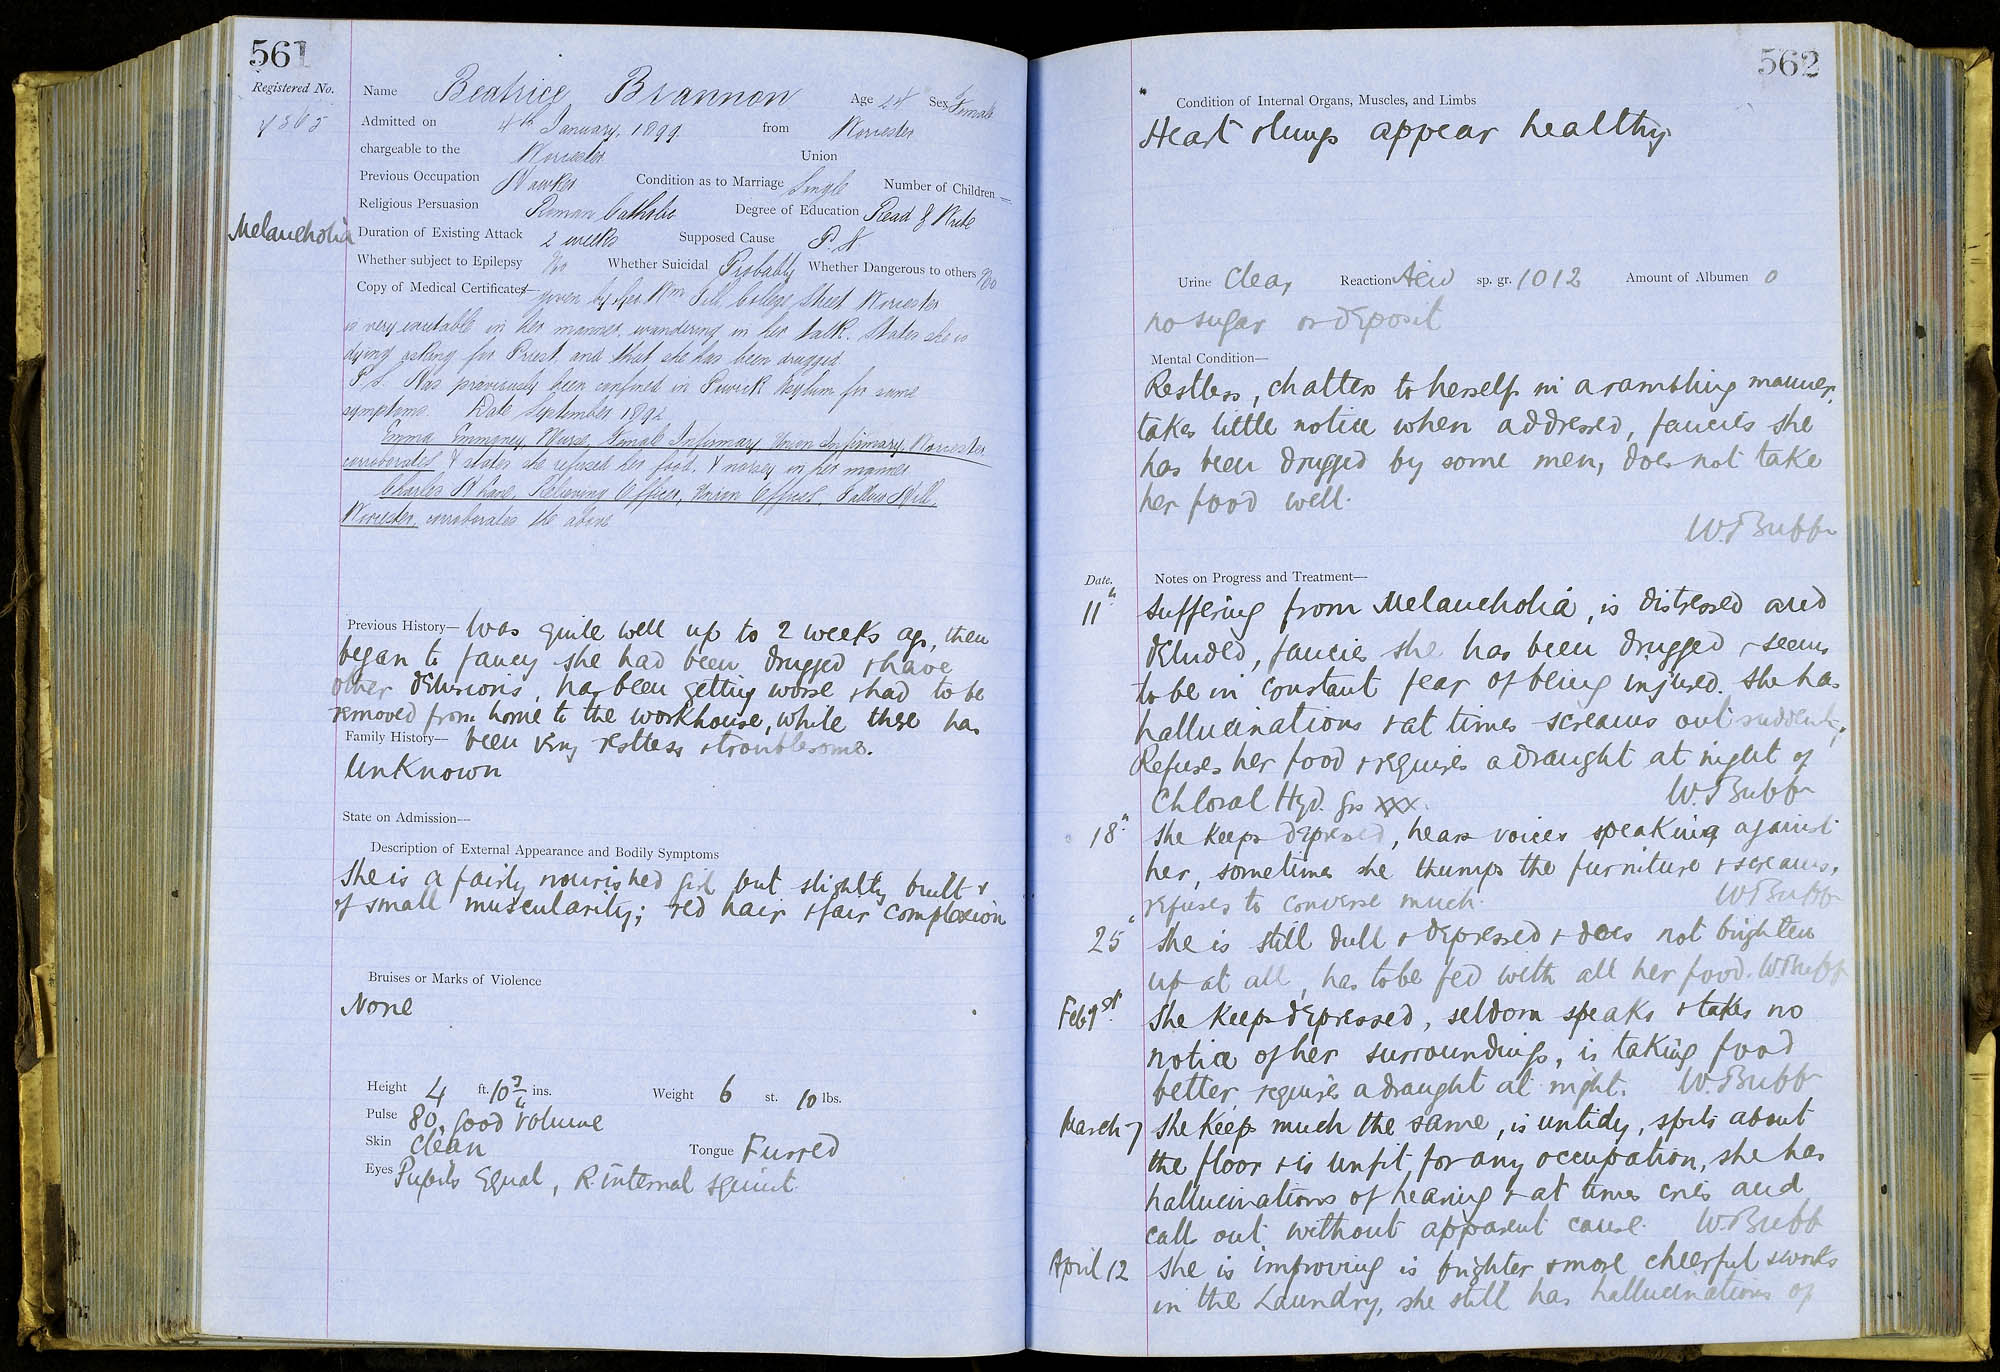 561
Registered No.
Name Beatrice Brannon Age 24 Sex Female
Admitted on 4th January, 1899 from Worcester
chargeable to the Worcester Union
Previous Occupation Hawker Condition as to Marriage Single Number of Children —
Religious Persuasion Roman Catholic Degree of Education Read & Write
Melancholia
Duration of Existing Attack 2 weeks Supposed Cause P. A
Whether subject to Epilepsy No Whether Suicidal Probably Whether Dangerous to others No
Copy of Medical Certificate given by Wm College Street Worcester
is very excitable in her manner, wandering in her talk. States she is
dying asking for Priest, and that she has been drugged.
P.S. Has previously been confined in Powick Asylum for same
symptoms. Date September 1892
Emma Nurse, Female Infirmary, Union Infirmary, Worcester
corroborates & states she refused her food, & noisey in her manner
Charles Relieving Officer, Union Offices, Hill,
Worcester, corroborates the above
Previous History— Was quite well up to 2 weeks ago, then
began to fancy she had been drugged & have
other delusions, has been getting worse & had to be
removed from home to the workhouse, while there has
been very restless & troublesome.
Family History—
Unknown
State on Admission—
Description of External Appearance and Bodily Symptoms
She is a fairly nourished girl but slightly built &
of small muscularity; red hair & fair complexion
Bruises or Marks of Violence
None
Height 4 ft. 10 3/4 ins. Weight 6 st. 10 lbs.
Pulse 80, good volume
Skin Clean Tongue Furred
Eyes Pupils Equal, R. internal squint
562
Condition of Internal Organs, Muscles, and Limbs
Heart & lungs appear healthy
Urine Clear Reaction Acid sp. gr. 1012 Amount of Albumen 0
no sugar or deposit
Mental Condition—
Restless, chatters to herself in a rambling manner,
takes little notice when addressed, fancies she
has been drugged by some men, does not take
her food well.
Date. Notes on Progress and Treatment—
11th Suffering from Melancholia, is distressed and
deluded, fancies she has been drugged & seems
to be in constant fear of being injured. She has
hallucinations & at times screams out suddenly,
Refuses her food & requires a draught at night of
Chloral Hyd. grs xxx.
18th She keeps depressed, hears voices speaking against
her, sometimes she thumps the furniture & screams,
refuses to converse much.
25th She is still dull & depressed & does not brighten
up at all, has to be fed with all her food.
Feb 1st She keeps depressed, seldom speaks & takes no
notice of her surroundings, is taking food
better, requires a draught at night.
March 7 She keeps much the same, is untidy, spits about
the floor & is unfit for any occupation, she has
hallucinations of hearing & at times cries and
calls out without apparent cause.
April 12 She is improving is brighter & more cheerful & works
in the Laundry, she still has hallucinations of